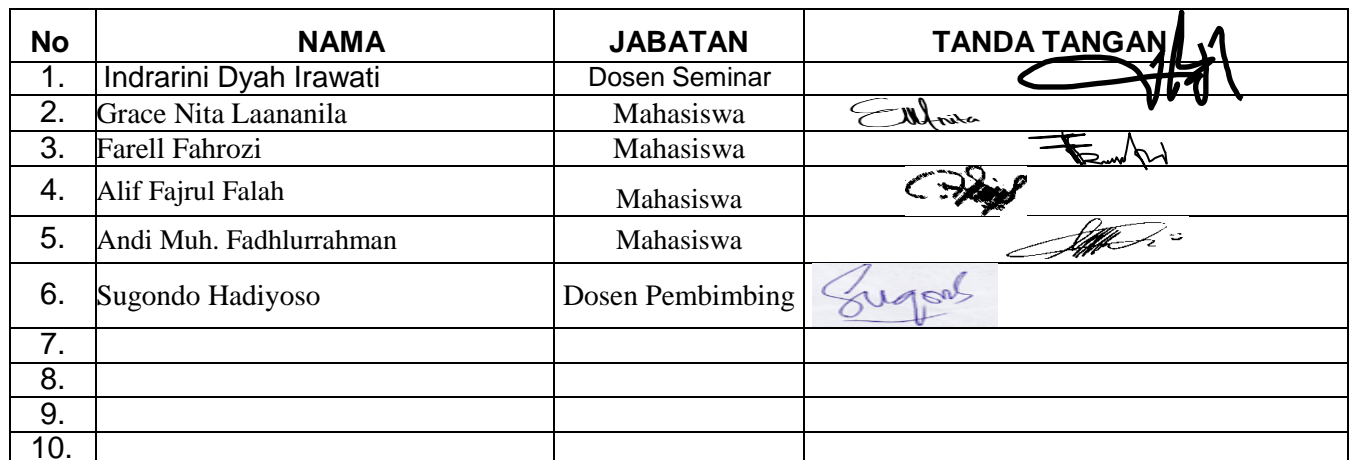 No NAMA JABATAN TANDA TANGAN
1. Indrarini Dyah Irawati Dosen Seminar
2. Grace Nita Laananila Mahasiswa
3. Farell Fahrozi Mahasiswa
4. Alif Fajrul Falah Mahasiswa
5. Andi Muh. Fadhlurrahman Mahasiswa
6. Sugondo Hadiyoso Dosen Pembimbing
7.
8.
9.
10.